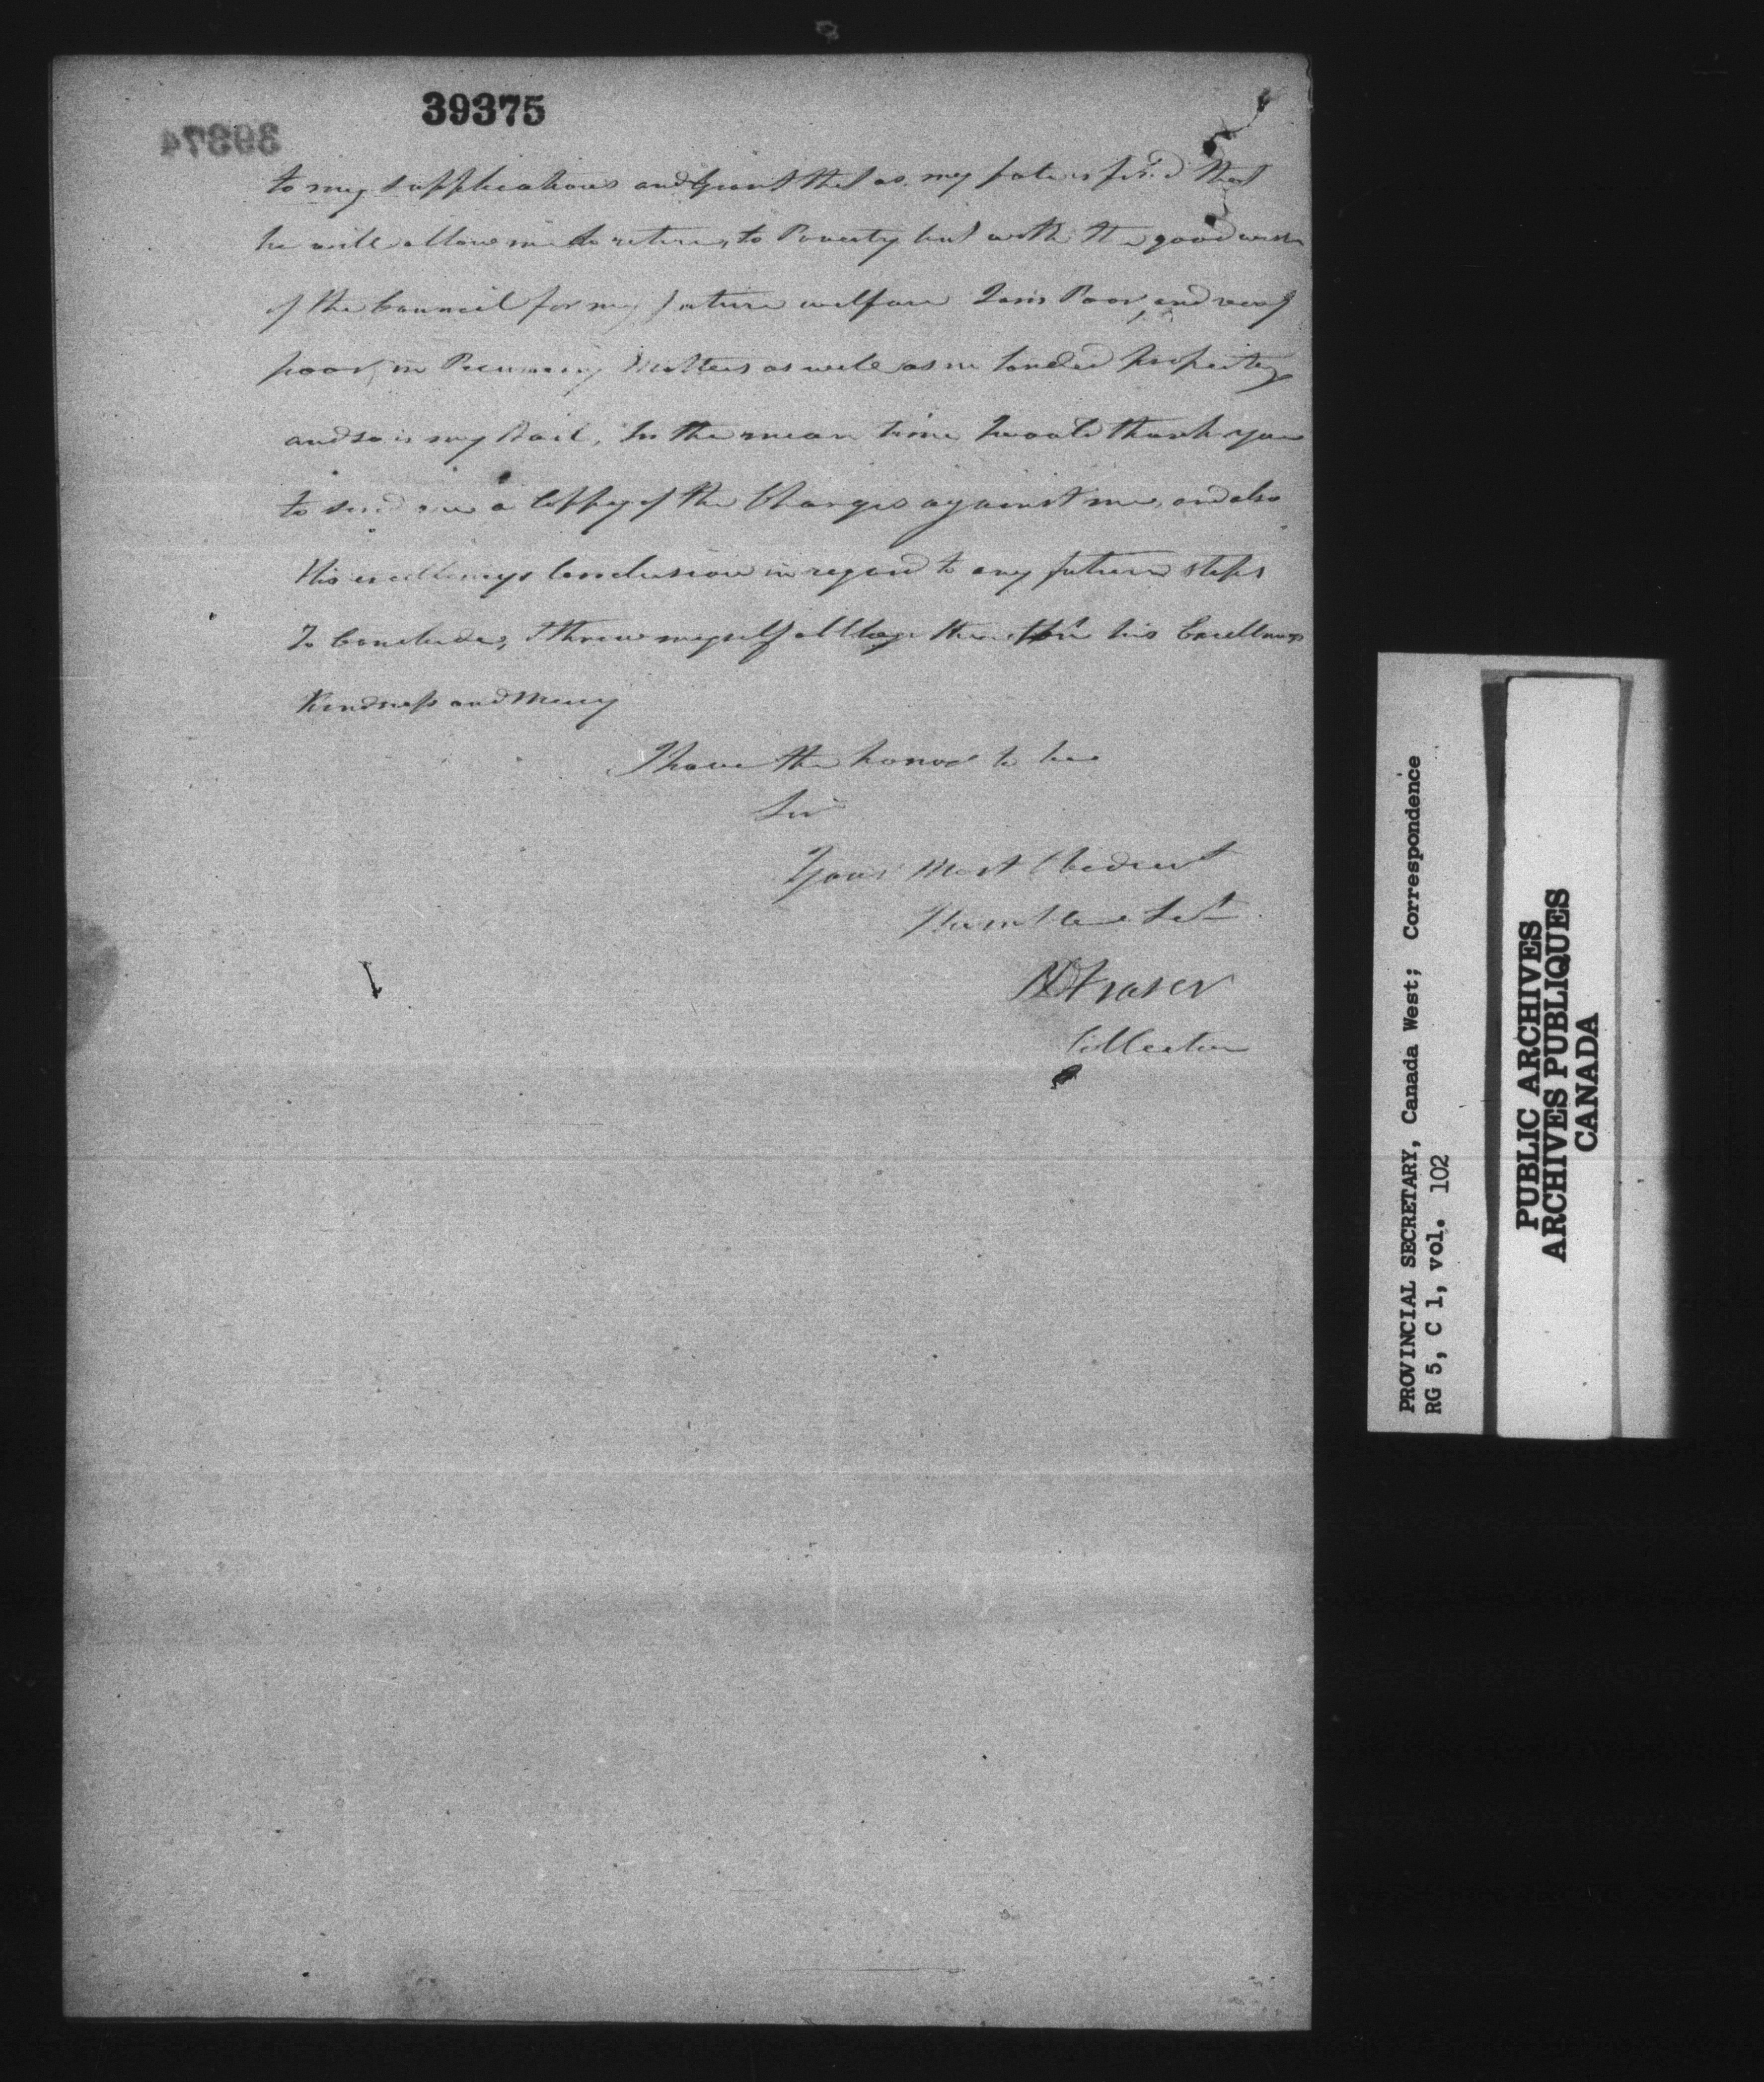 39375
39374
to my supplications and grant that as my fate is fix'd that
he will allow me to retire, to Poverty but with the good wish
of the Council for my future welfare I am Poor, and very
poor, in Pecuniary Matters as well as in landed property
and so is my Bail, In the mean time I would thank you
to send me a Coppy of the Charges against me, and also
His excellencys Conclusion in regard to any future steps
To Conclude, I throw myself alltogether on his Excellencys
Kindness and Mercy
I have the honor to be
Sir
Your Most Obedient
Humble Sert
Fraser
Collector
PROVINCIAL SECRETARY, Canada West; Correspondence
RG 5, C 1, vol. 102
PUBLIC ARCHIVES
ARCHIVES PUBLIQUES
CANADA